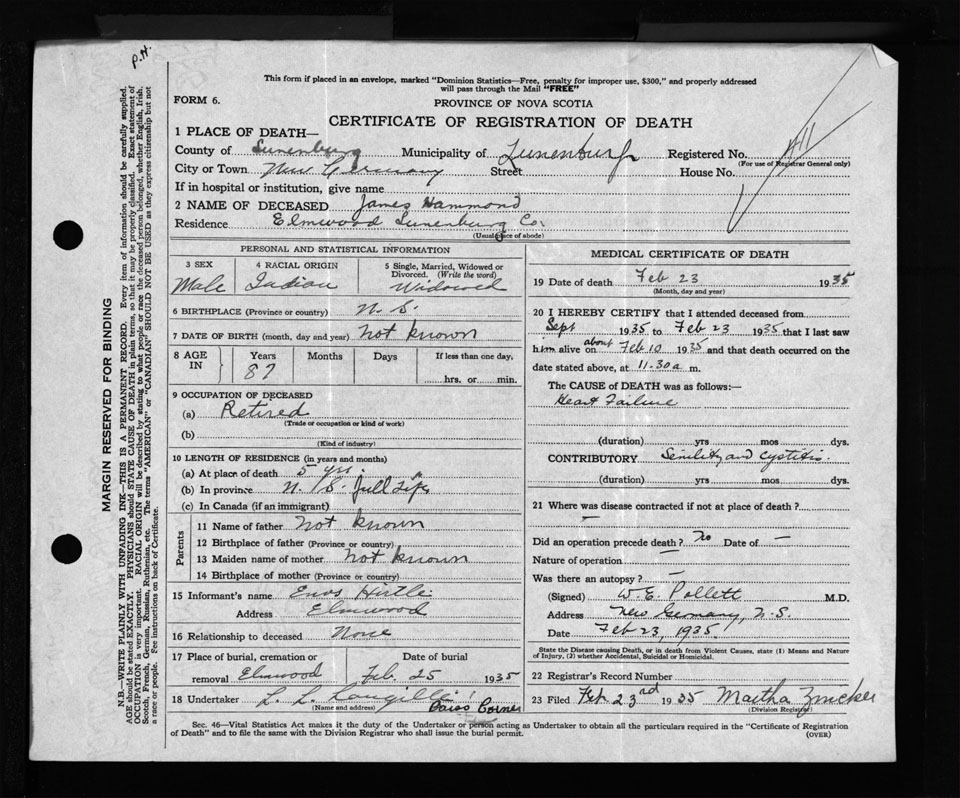 P.H.
This form if placed in an envelope, marked "Dominion Statistics—Free, penalty for improper use, $300," and properly addressed
will pass through the Mail "FREE"
FORM 6.
PROVINCE OF NOVA SCOTIA
CERTIFICATE OF REGISTRATION OF DEATH
1 PLACE OF DEATH—
County of Lunenburg Municipality of Lunenburg Registered No. 411
(For use of Registrar General only)
City or Town New Germany Street House No.
If in hospital or institution, give name
2 NAME OF DECEASED James Hammond
Residence Elmwood Lunenburg Co.
(Usual place of abode)
PERSONAL AND STATISTICAL INFORMATION
3 SEX Male
4 RACIAL ORIGIN Indian
5 Single, Married, Widowed or Divorced. (Write the word) Widowed
6 BIRTHPLACE (Province or country) N. S.
7 DATE OF BIRTH (month, day and year) Not known
8 AGE IN Years 87 Months Days If less than one day, hrs. or min.
9 OCCUPATION OF DECEASED
(a) Retired
(Trade or occupation or kind of work)
(b)
(Kind of industry)
10 LENGTH OF RESIDENCE (in years and months)
(a) At place of death 5 yrs.
(b) In province N. S. full life
(c) In Canada (if an immigrant)
Parents
11 Name of father Not known
12 Birthplace of father (Province or country)
13 Maiden name of mother Not known
14 Birthplace of mother (Province or country)
15 Informant's name Enos Hirtle
Address Elmwood
16 Relationship to deceased None
17 Place of burial, cremation or Date of burial
removal Elmwood Feb. 25 1935
18 Undertaker L. L.
(Name and address) Corner
MEDICAL CERTIFICATE OF DEATH
19 Date of death Feb 23 1935
(Month, day and year)
20 I HEREBY CERTIFY that I attended deceased from
Sept 1935 to Feb 23 1935 that I last saw
him alive on about Feb 10 1935 and that death occurred on the
date stated above, at 11-30 a m.
The CAUSE of DEATH was as follows:—
Heart Failure
(duration) yrs mos dys.
CONTRIBUTORY Senility and cystitis.
(duration) yrs mos dys.
21 Where was disease contracted if not at place of death ?
—
Did an operation precede death ? No Date of —
Nature of operation —
Was there an autopsy ? —
(Signed) W. E. Pollett M.D.
Address New Germany, N.S.
Date Feb 23, 1935
State the Disease causing Death, or in death from Violent Causes, state (1) Means and Nature
of Injury, (2) whether Accidental, Suicidal or Homicidal.
22 Registrar's Record Number
23 Filed Feb 23rd 1935 Martha Zwicker
(Division Registrar)
Sec. 46—Vital Statistics Act makes it the duty of the Undertaker or person acting as Undertaker to obtain all the particulars required in the "Certificate of Registration
of Death" and to file the same with the Division Registrar who shall issue the burial permit.
(OVER)
MARGIN RESERVED FOR BINDING
N.B.—WRITE PLAINLY WITH UNFADING INK—THIS IS A PERMANENT RECORD. Every item of information should be carefully supplied.
AGE should be stated EXACTLY. PHYSICIANS should STATE CAUSE OF DEATH in plain terms, so that it may be properly classified. Exact statement of
OCCUPATION is very important. RACIAL ORIGIN will be described by stating to what people or race the deceased person belonged, whether English, Irish,
Scotch, French, German, Russian, Ruthenian, etc. The terms "AMERICAN" or "CANADIAN" SHOULD NOT BE USED as they express citizenship but not
a race or people. See instructions on back of Certificate.